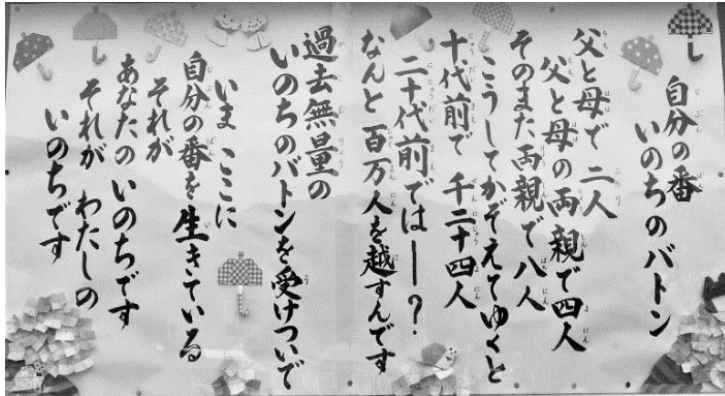 自分の番
いのちのバトン
父と母で二人
父と母の両親で四人
そのまた両親で八人
こうしてかぞえてゆくと
十代前で千二十四人
二十代前ではー？
なんと百万人を越すんです
過去無量の
いのちのバトンを受けついで
いまここに
自分の番を生きている
それが
あなたのいのちです
それがわたしの
いのちです